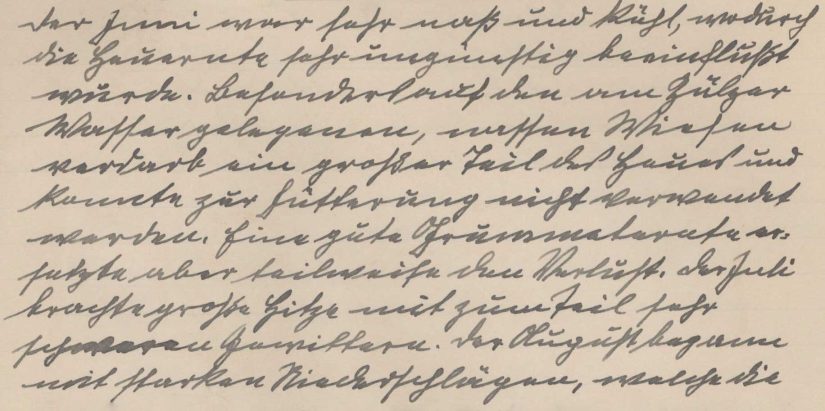 Der Juni war sehr naß und kühl, wodurch
die Heuernte sehr ungünstig beeinflußt
wurde. Besonders auf den am Zülzer
Wasser gelegenen, nassen Wiesen
verdarb ein großer Teil des Heues und
konnte zur Fütterung nicht verwendet
werden. Eine gute Grummeternte er-
setzte aber teilweise den Verlust. Der Juli
brachte große Hitze mit zum Teil sehr
schweren Gewittern. Der August begann
mit starken Niederschlägen, welche die